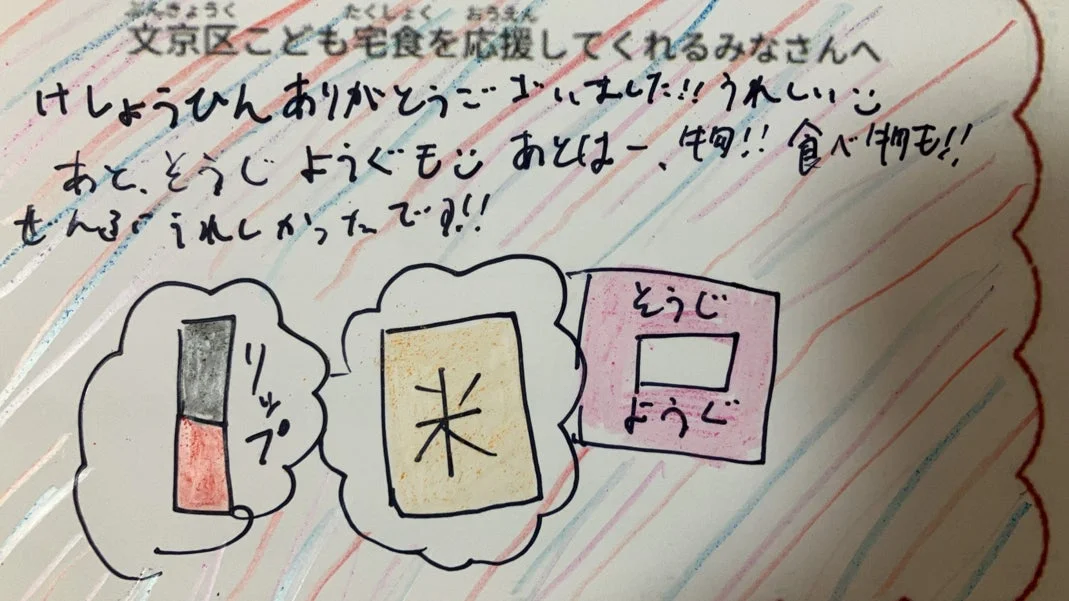 ぶんきょうく たくしょく おうえん
文京区こども宅食を応援してくれるみなさんへ
けしょうひんありがとうございました!!うれしい
あと、そうじようぐもあとはー、物!!食べ物も!!
ぜんぶうれしかったです!!
リップ
米
そうじ
ようぐ